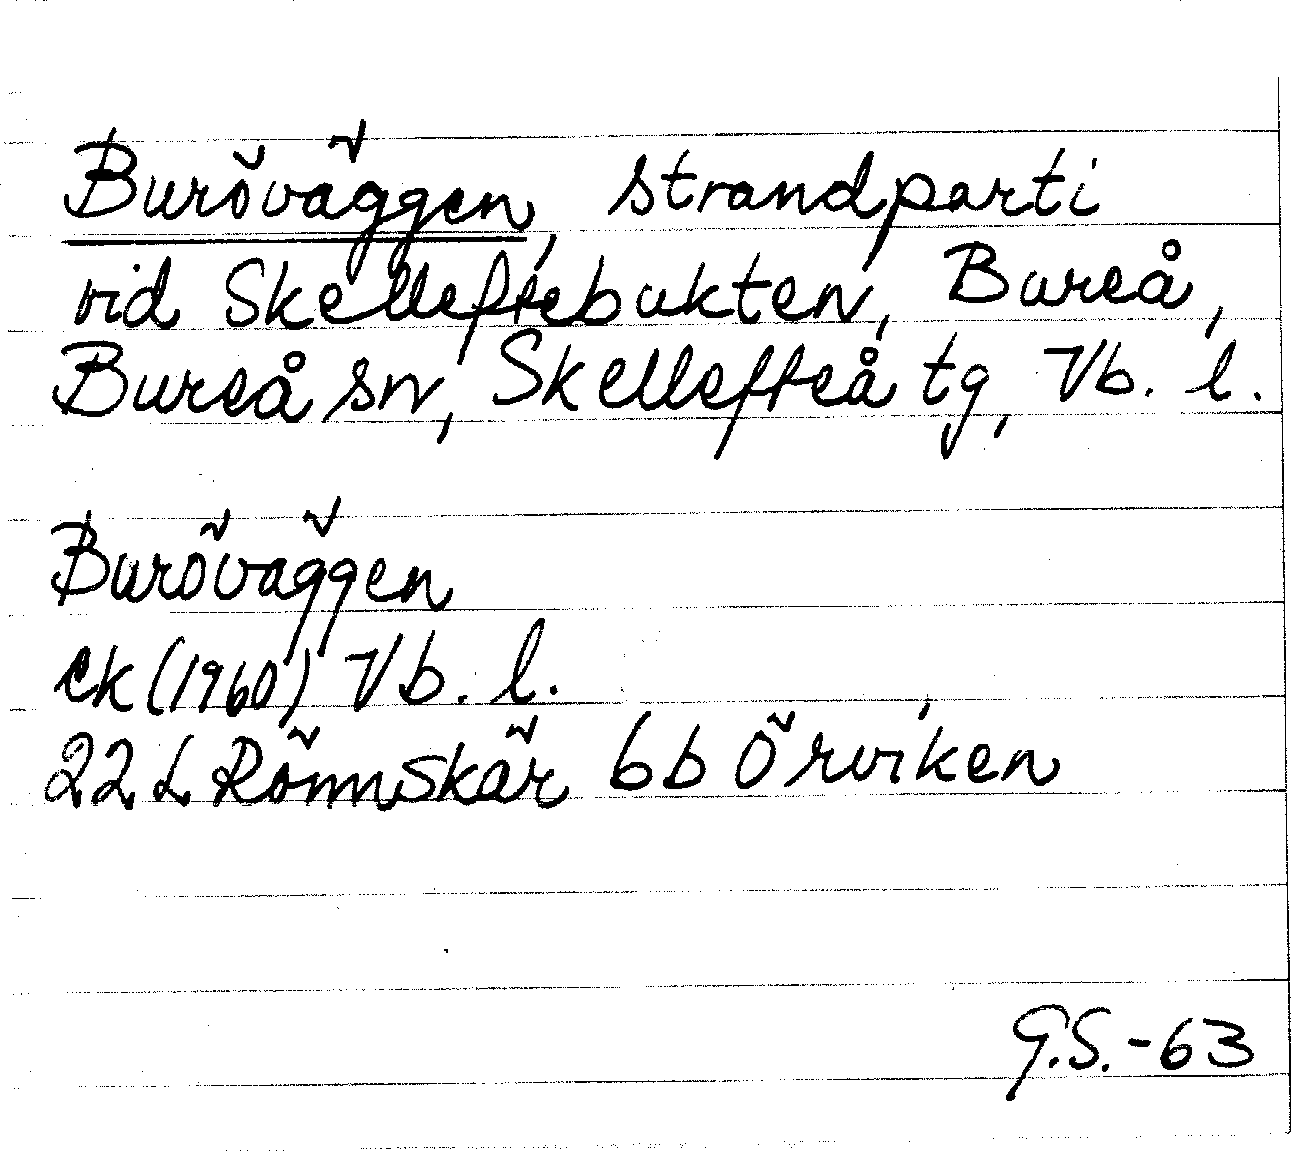 Buröväggen, strandparti
vid Skelleftebukten, Bureå,
Bureå sn, Skellefteå tg, Vb. l.
Buröväggen
ek (1960) Vb. l.
22 L Rönnskär 6b Örviken
G.S.-63